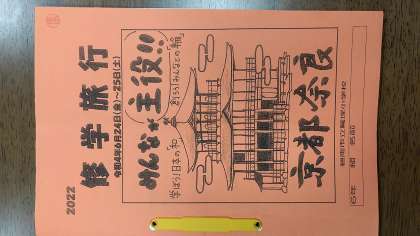 2022
修学旅行
令和4年6月24日(金)～25日(土)
みんなが主役!!
創ろう!みんなとの「輪」
学ぼう!日本の「和」
京都 奈良
6年 組 名前